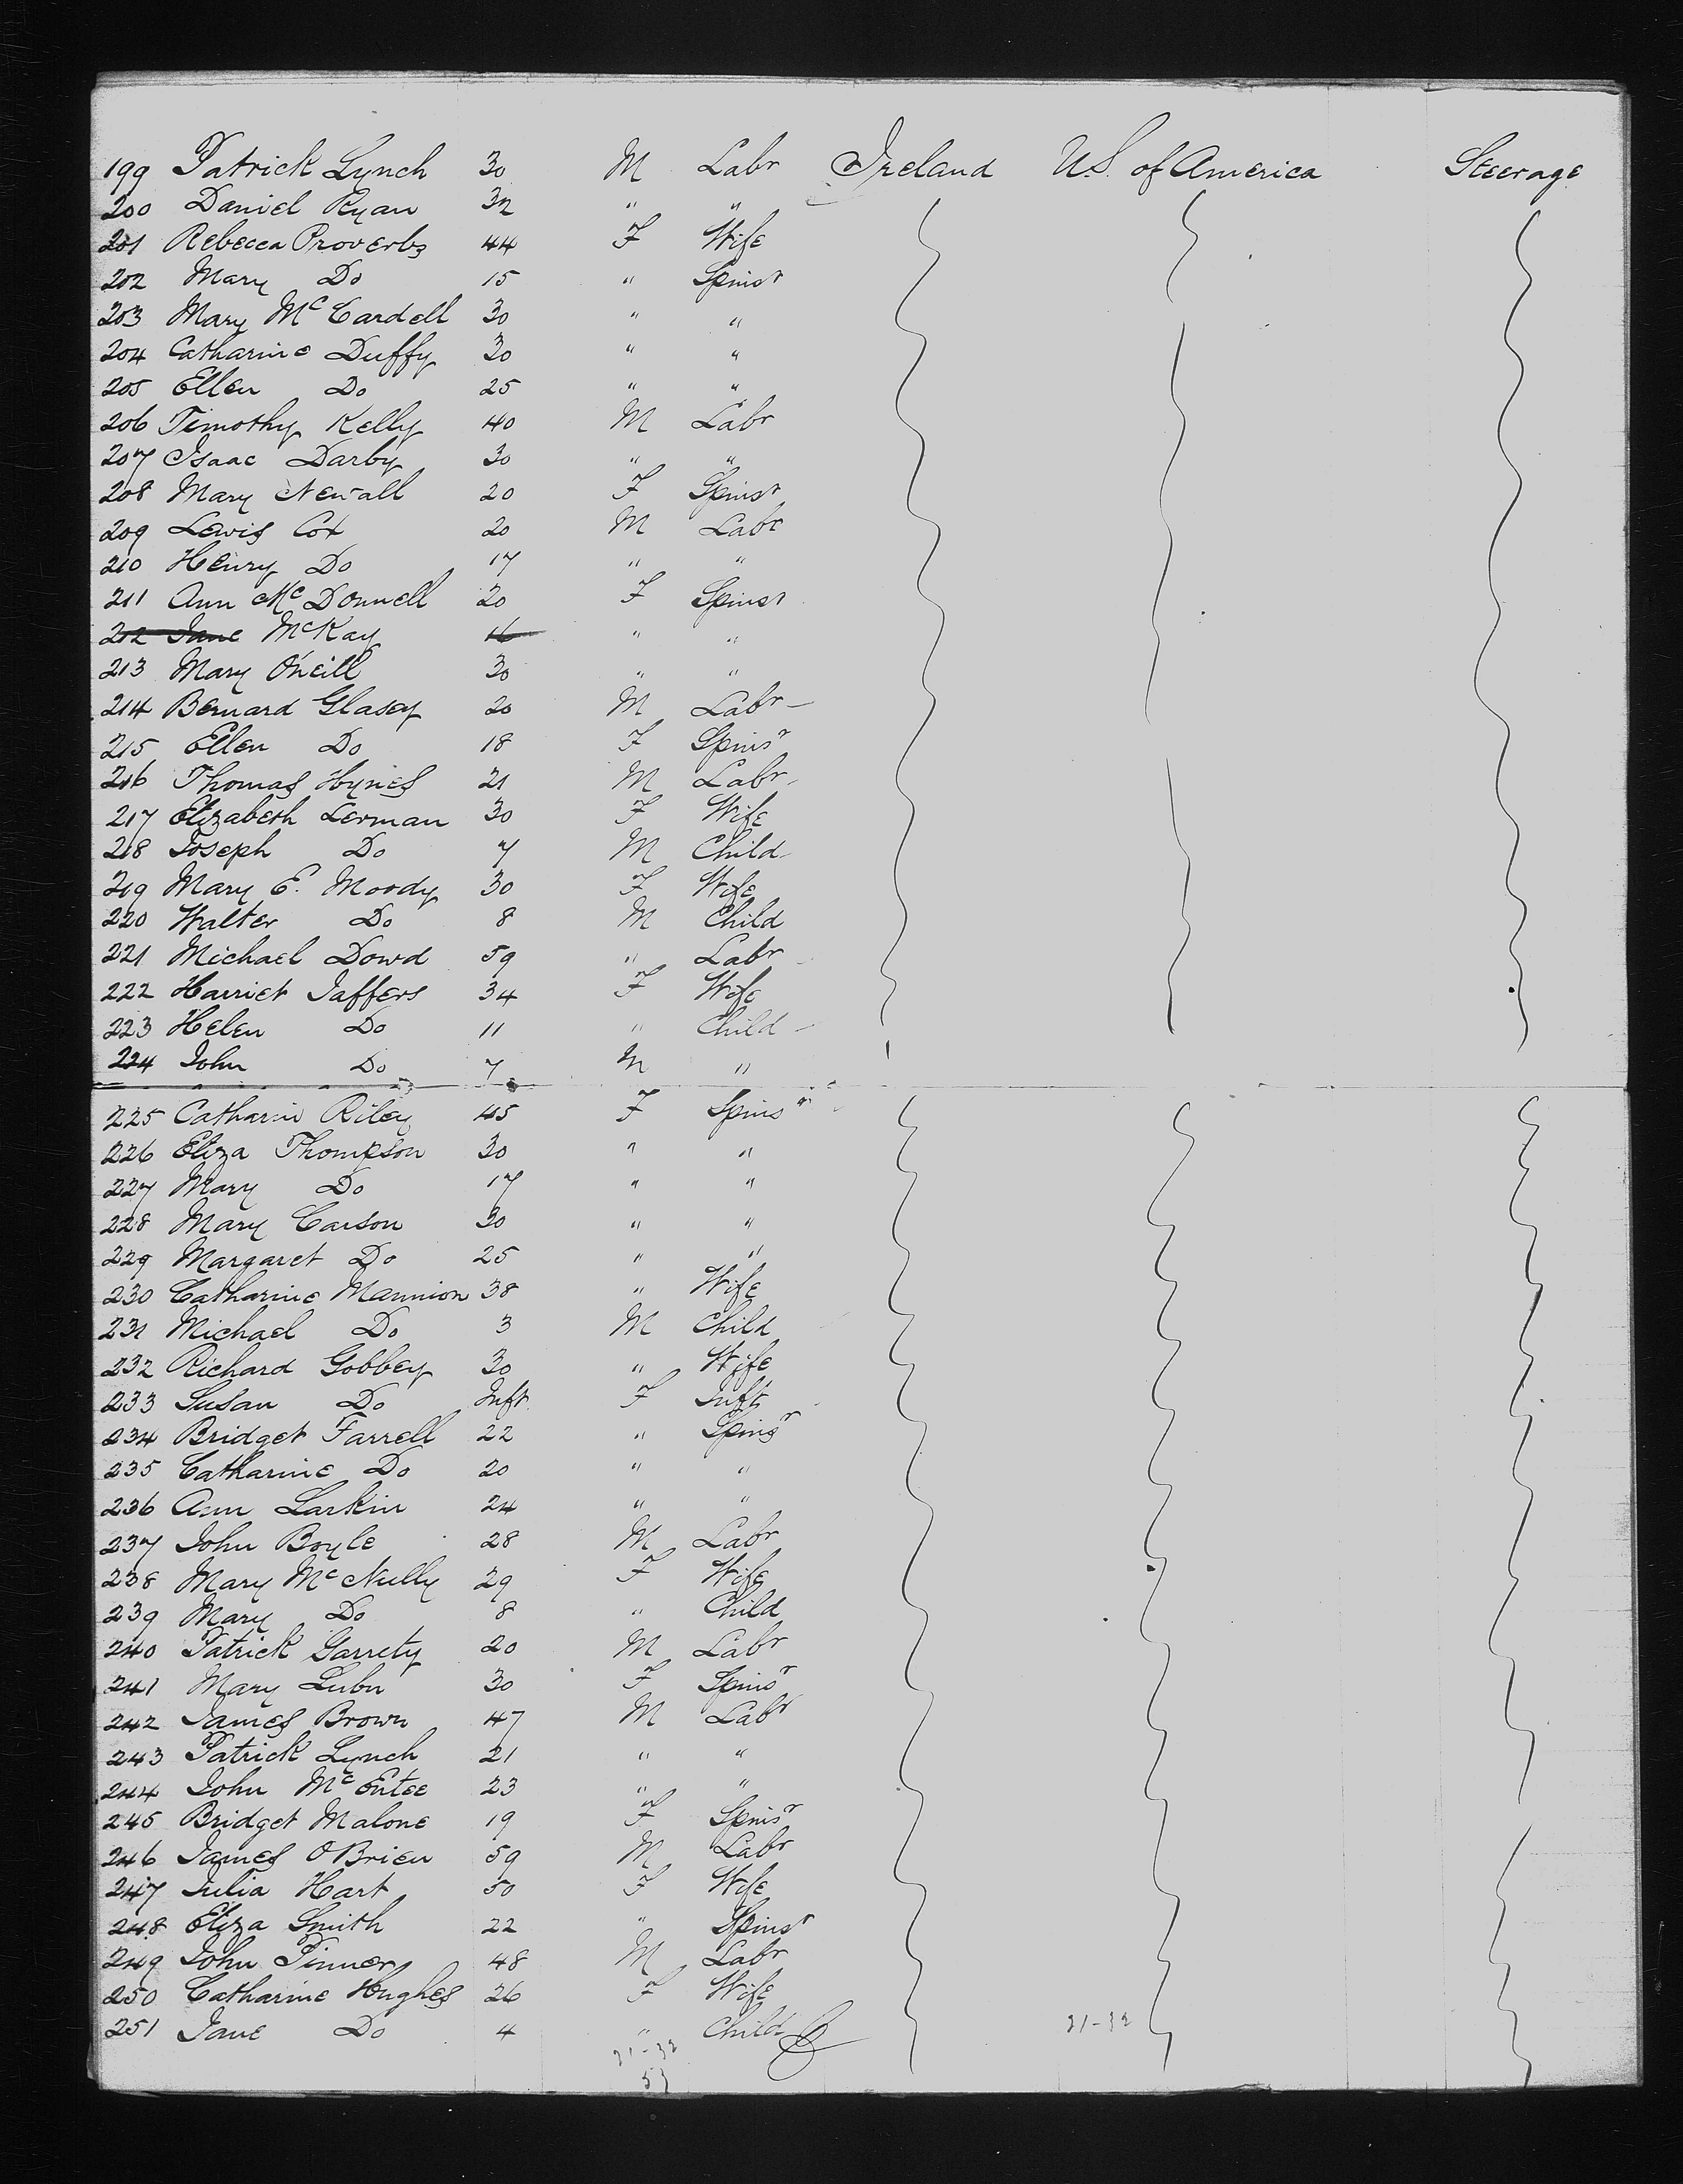 199 Patrick Lynch 30 M Labr Ireland U.S. of America Steerage
200 Daniel Ryan 32 " "
201 Rebecca Proverbs 44 F Wife
202 Mary Do 15 " Spinst
203 Mary McCardell 30 " "
204 Catharine Duffy 30 " "
205 Ellen Do 25 " "
206 Timothy Kelly 40 M Labr
207 Isaac Darby 30 " "
208 Mary Newall 20 F Spinst
209 Lewis Cox 20 M Labr
210 Henry Do 17 " "
211 Ann McDonnell 20 F Spinst
212 Jane McKay 16 " "
213 Mary O'neill 30 " "
214 Bernard Glasey 20 M Labr
215 Ellen Do 18 F Spinsr
216 Thomas Hynes 21 M Labr
217 Elizabeth Lerman 30 F Wife
218 Joseph Do 7 M Child
219 Mary E. Moody 30 F Wife
220 Walter Do 8 M Child
221 Michael Dowd 59 " Labr
222 Harriet Jaffers 34 F Wife
223 Helen Do 11 " Child
224 John Do 7 M "
225 Catharin Riley 45 F Spinsr
226 Eliza Thompson 30 " "
227 Mary Do 17 " "
228 Mary Carson 30 " "
229 Margaret Do 25 " "
230 Catharine Mannion 38 " Wife
231 Michael Do 3 M Child
232 Richard Gobbey 30 " Wife
233 Susan Do Inft F Inft
234 Bridget Farrell 22 " Spinsr
235 Catharine Do 20 " "
236 Ann Larkin 24 " "
237 John Boyle 28 M Labr
238 Mary McNully 29 F Wife
239 Mary Do 8 " Child
240 Patrick Garrety 20 M Labr
241 Mary 30 F Spinsr
242 James Brown 47 M Labr
243 Patrick Lynch 21 " "
244 John McEntee 23 " "
245 Bridget Malone 19 F Spinsr
246 James OBrien 59 M Labr
247 Julia Hart 50 F Wife
248 Eliza Smith 22 " Spinst
249 John Pinner 48 M Labr
250 Catharine Hughes 26 F Wife
251 Jane Do 4 " Child
21-32 21-32
53